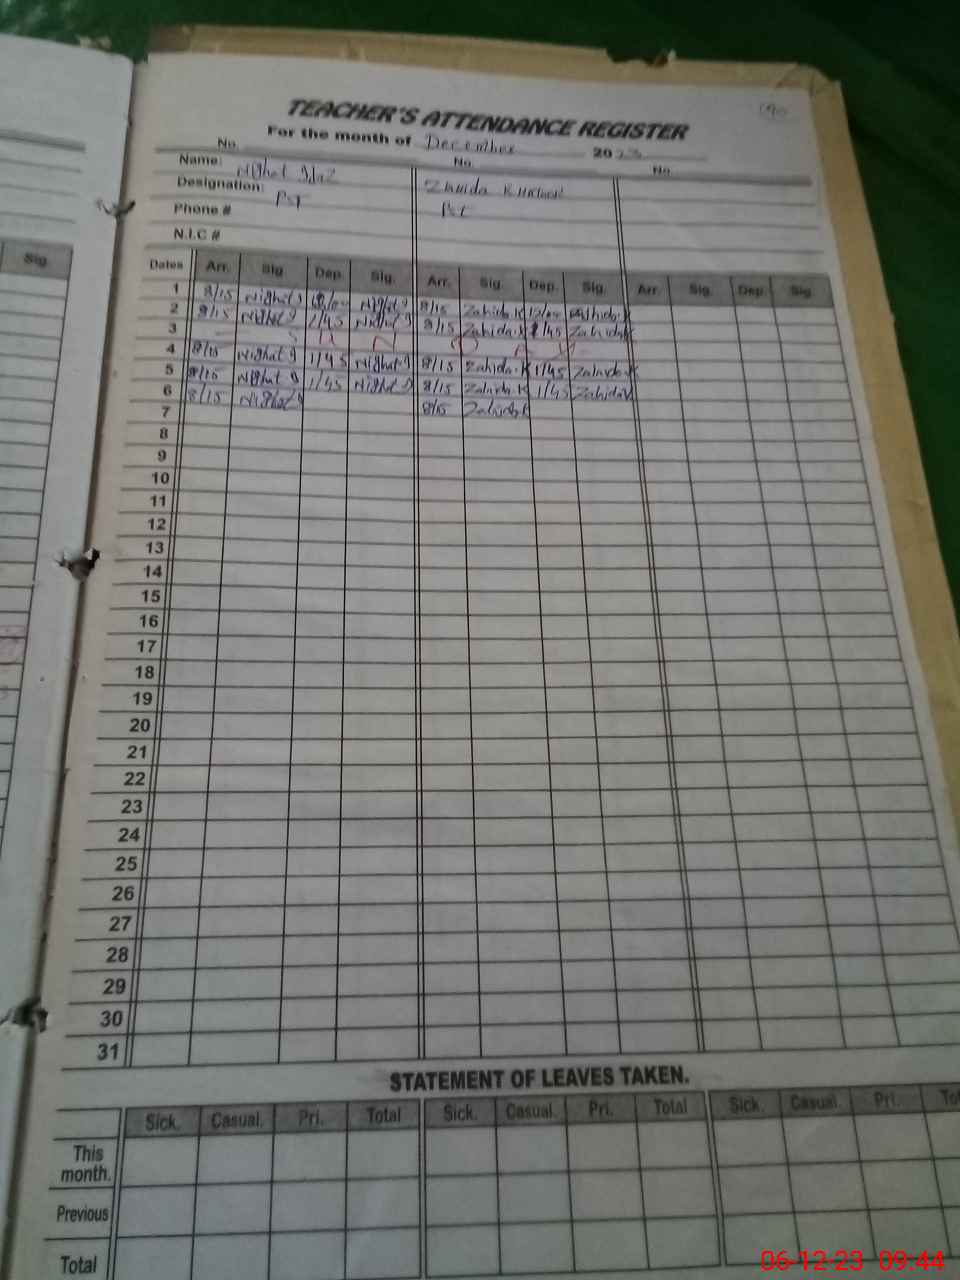 TEACHER'S ATTENDANCE REGISTER
For the month of December 2023
No. No. No.
Name: Nighat Ijaz Zahida Khatoon
Designation: Pst Pst
Phone #
N.I.C #
Sig.
Dates Arr. Sig. Dep. Sig. Arr. Sig. Dep. Sig. Arr. Sig. Dep. Sig.
1 8/15 Nighat I Nighat I 8/15 Zahida.K Zahida.K
2 8/15 Nighat I 1/45 Nighat I 8/15 Zahida.K 1/45 Zahida.K
3 S U N D A Y
4 8/15 Nighat I 1/45 Nighat I 8/15 Zahida.K 1/45 Zahida.K
5 8/15 Nighat I 1/45 Nighat I 8/15 Zahida.K 1/45 Zahida K
6 8/15 Nighat I 8/15 Zahida K
7
8
9
10
11
12
13
14
15
16
17
18
19
20
21
22
23
24
25
26
27
28
29
30
31
STATEMENT OF LEAVES TAKEN.
Sick. Casual. Pri. Total Sick. Casual. Pri. Total Sick. Casual. Pri.
This
month.
Previous
Total
06-12-23 09:44